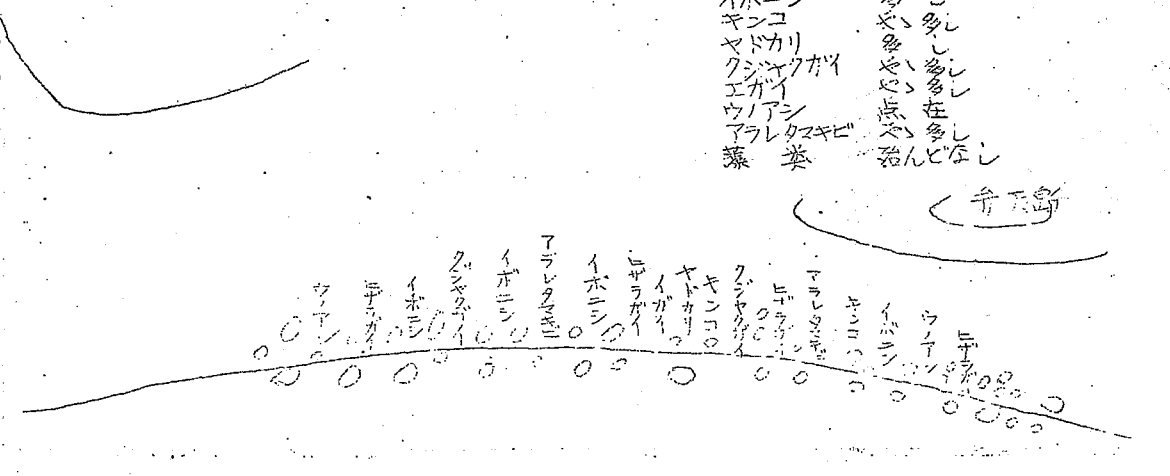 イボニシ 多し
キンコ やゝ多し
ヤドカリ 多し
クジャクガイ やゝ多し
エガイ やゝ多し
ウノアシ 点在
アラレタマキビ やゝ多し
藻類 殆んどなし
弁天島
ウノアシ
ヒザラガイ
イボニシ
クジャクガイ
イボニシ
アラレタマキビ
イボニシ
ヒザラガイ
イガイ
ヤドカリ
キンコ
クジャクガイ
ヒザラガイ
アラレタマキビ
キンコ
イボニシ
ウノアシ
ヒザラガイ